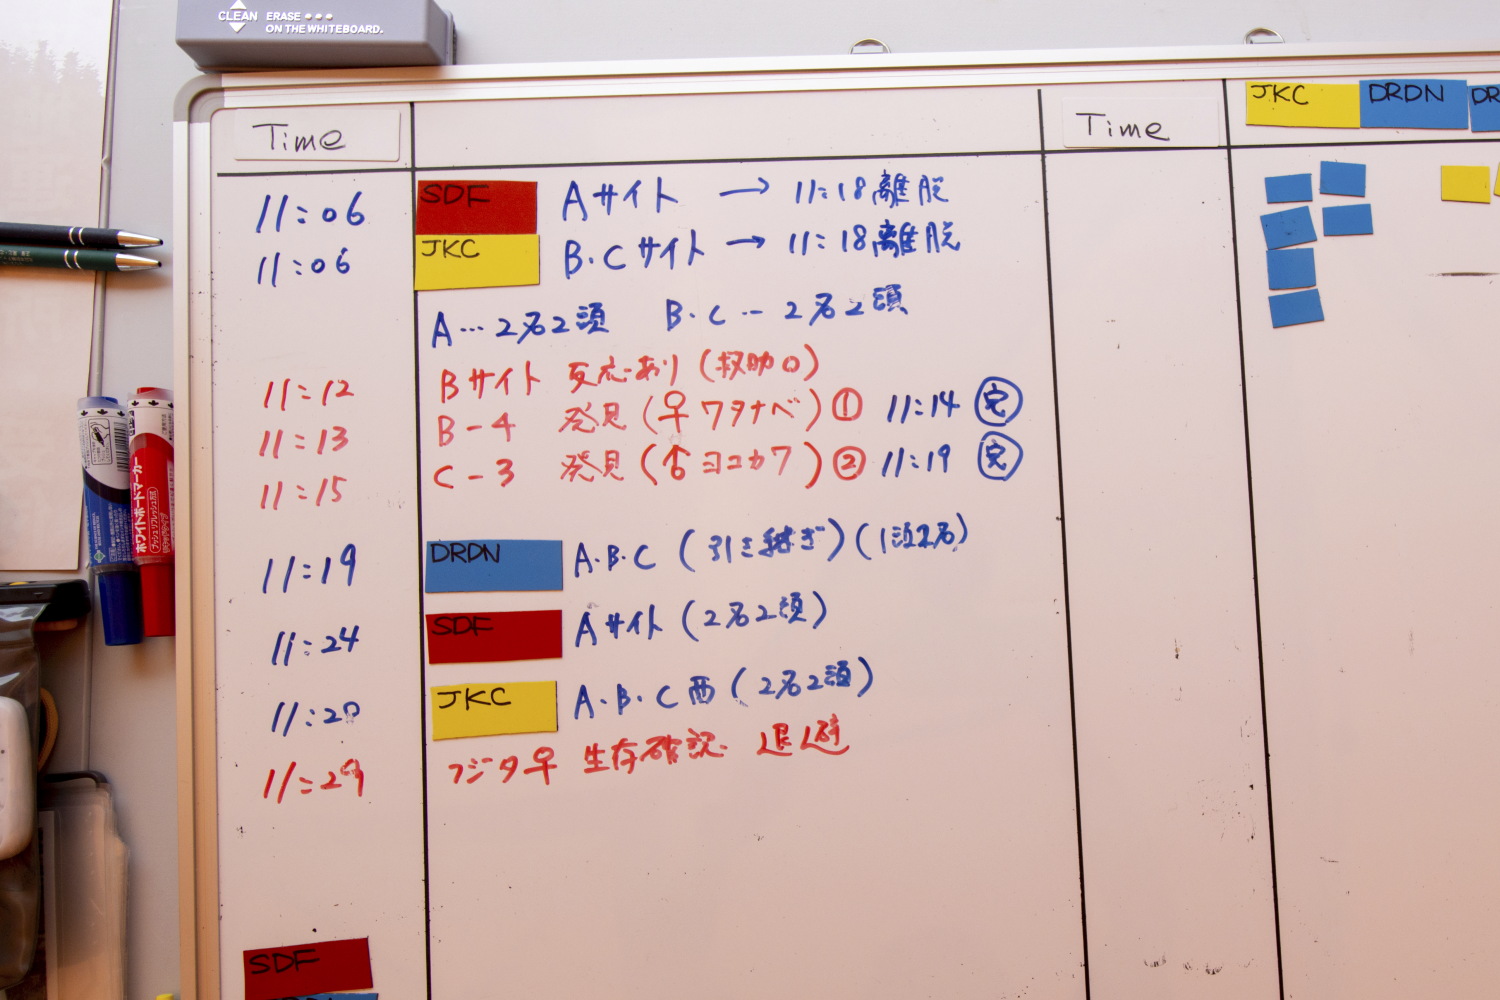 CLEAN ERASE
ON THE WHITEBOARD.
Time
Time
JKC DRDN DR
11:06 SDF Aサイト → 11:18離脱
11:06 JKC B・Cサイト → 11:18離脱
A…2名2頭 B・C…2名2頭
11:12 Bサイト 反応あり(救助0)
11:13 B-4 発見(♀ワタナベ)① 11:14 完
11:15 C-3 発見(♂ヨコカワ)② 11:19 完
11:19 DRDN A・B・C(引き継ぎ)
11:24 SDF Aサイト(2名2頭)
11:28 JKC A・B・C西(2名2頭)
11:29 フジタ♀ 生存確認 退避
SDF
ホワイトボードマーカー